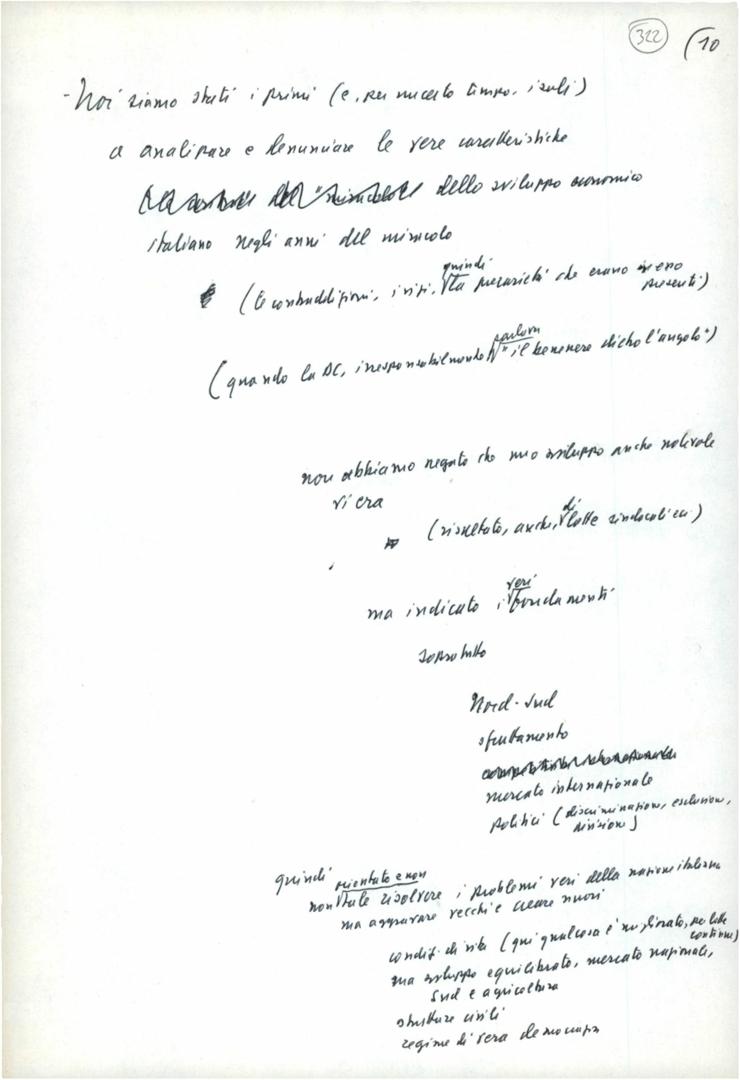 322 (10
- Noi siamo stati i primi (e, per un certo tempo, i soli)
a analizzare e denunciare le vere caratteristiche
dello sviluppo economico
italiano negli anni del miracolo
quindi
(le contraddizioni, i vizi, la precarietà che erano in esso
presenti)
parlava
(quando la DC, irresponsabilmente "il benessere dietro l'angolo")
non abbiamo negato che uno sviluppo anche notevole
vi era
di
(risultato, anche, lotte sindacali ecc.)
veri
ma indicato i fondamenti
sopratutto
Nord-Sud
sfruttamento
mercato internazionale
politici (discriminazione, esclusione,
divisione)
quindi orientato e non
non tale risolvere i problemi veri della nazione italiana
ma aggravare vecchi e creare nuovi
condiz. di vita (qui qualcosa è migliorato, per lotte
continue)
ma sviluppo equilibrato, mercato nazionale,
Sud e agricoltura
strutture civili
regime di vera democrazia